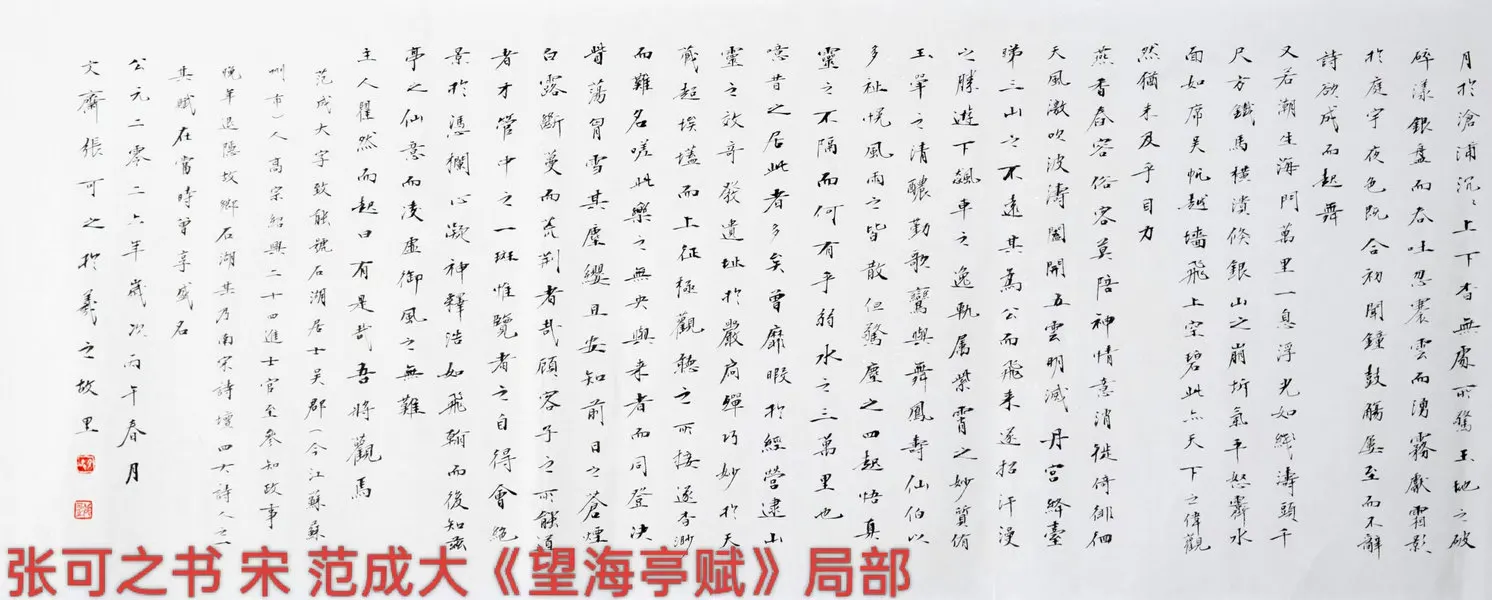 月於滄浦沉沉上下杳無處所驚玉地之破
碎漾銀盤而吞吐忽褰雲而湧霧獻霜影
於庭宇夜色既合初聞鐘鼓觴屢至而不辭
詩欲成而起舞
又若潮生海門萬里一息浮光如綫濤頭千
尺方鐵馬橫潰倏銀山之崩坼氣平怒霽水
面如席吳帆越墻飛上空碧此亦天下之偉觀
然猶未及乎目力
燕香春容俗客莫陪神情意消徙倚徘徊
天風激吹波濤闔開五雲明滅丹宮絳臺
睇三山之不遠其為公而飛来遂招汗漫
之勝遊下飆車之逸軌属紫霄之妙質侑
玉斝之清釀勤歌鸞與舞鳳壽仙伯以
多祉怳風雨之皆散但驚塵之四起悟真
靈之不隔而何有乎弱水之三萬里也
噫昔之居此者多矣曾靡暇於經營逮山
靈之效奇發遺址於巖扃繟巧妙於天
藏起埃壒而上征極觀聽之所接遂杳渺
而難名嗟此樂之無央與来者而同登决
眥蕩胷雪其塵纓且安知前日之蒼煙
白露斷蔓而荒荆者哉顧客子之所餘道
者才管中之一斑惟覽者之自得會絶
景於憑欄心凝神釋浩如飛翰而後知兹
亭之仙意而淩虛御風之無難
主人瞿然而起曰有是哉吾將觀焉
范成大字致能號石湖居士吳郡(今江蘇蘇
州市)人高宗紹興二十四進士官至參知政事
晚年退隱故鄉石湖其乃南宋詩壇四大詩人之一
其賦在當時曾享盛名
公元二零二六年歲次丙午春月
文齋張可之於羲之故里
张可之书 宋 范成大《望海亭赋》局部